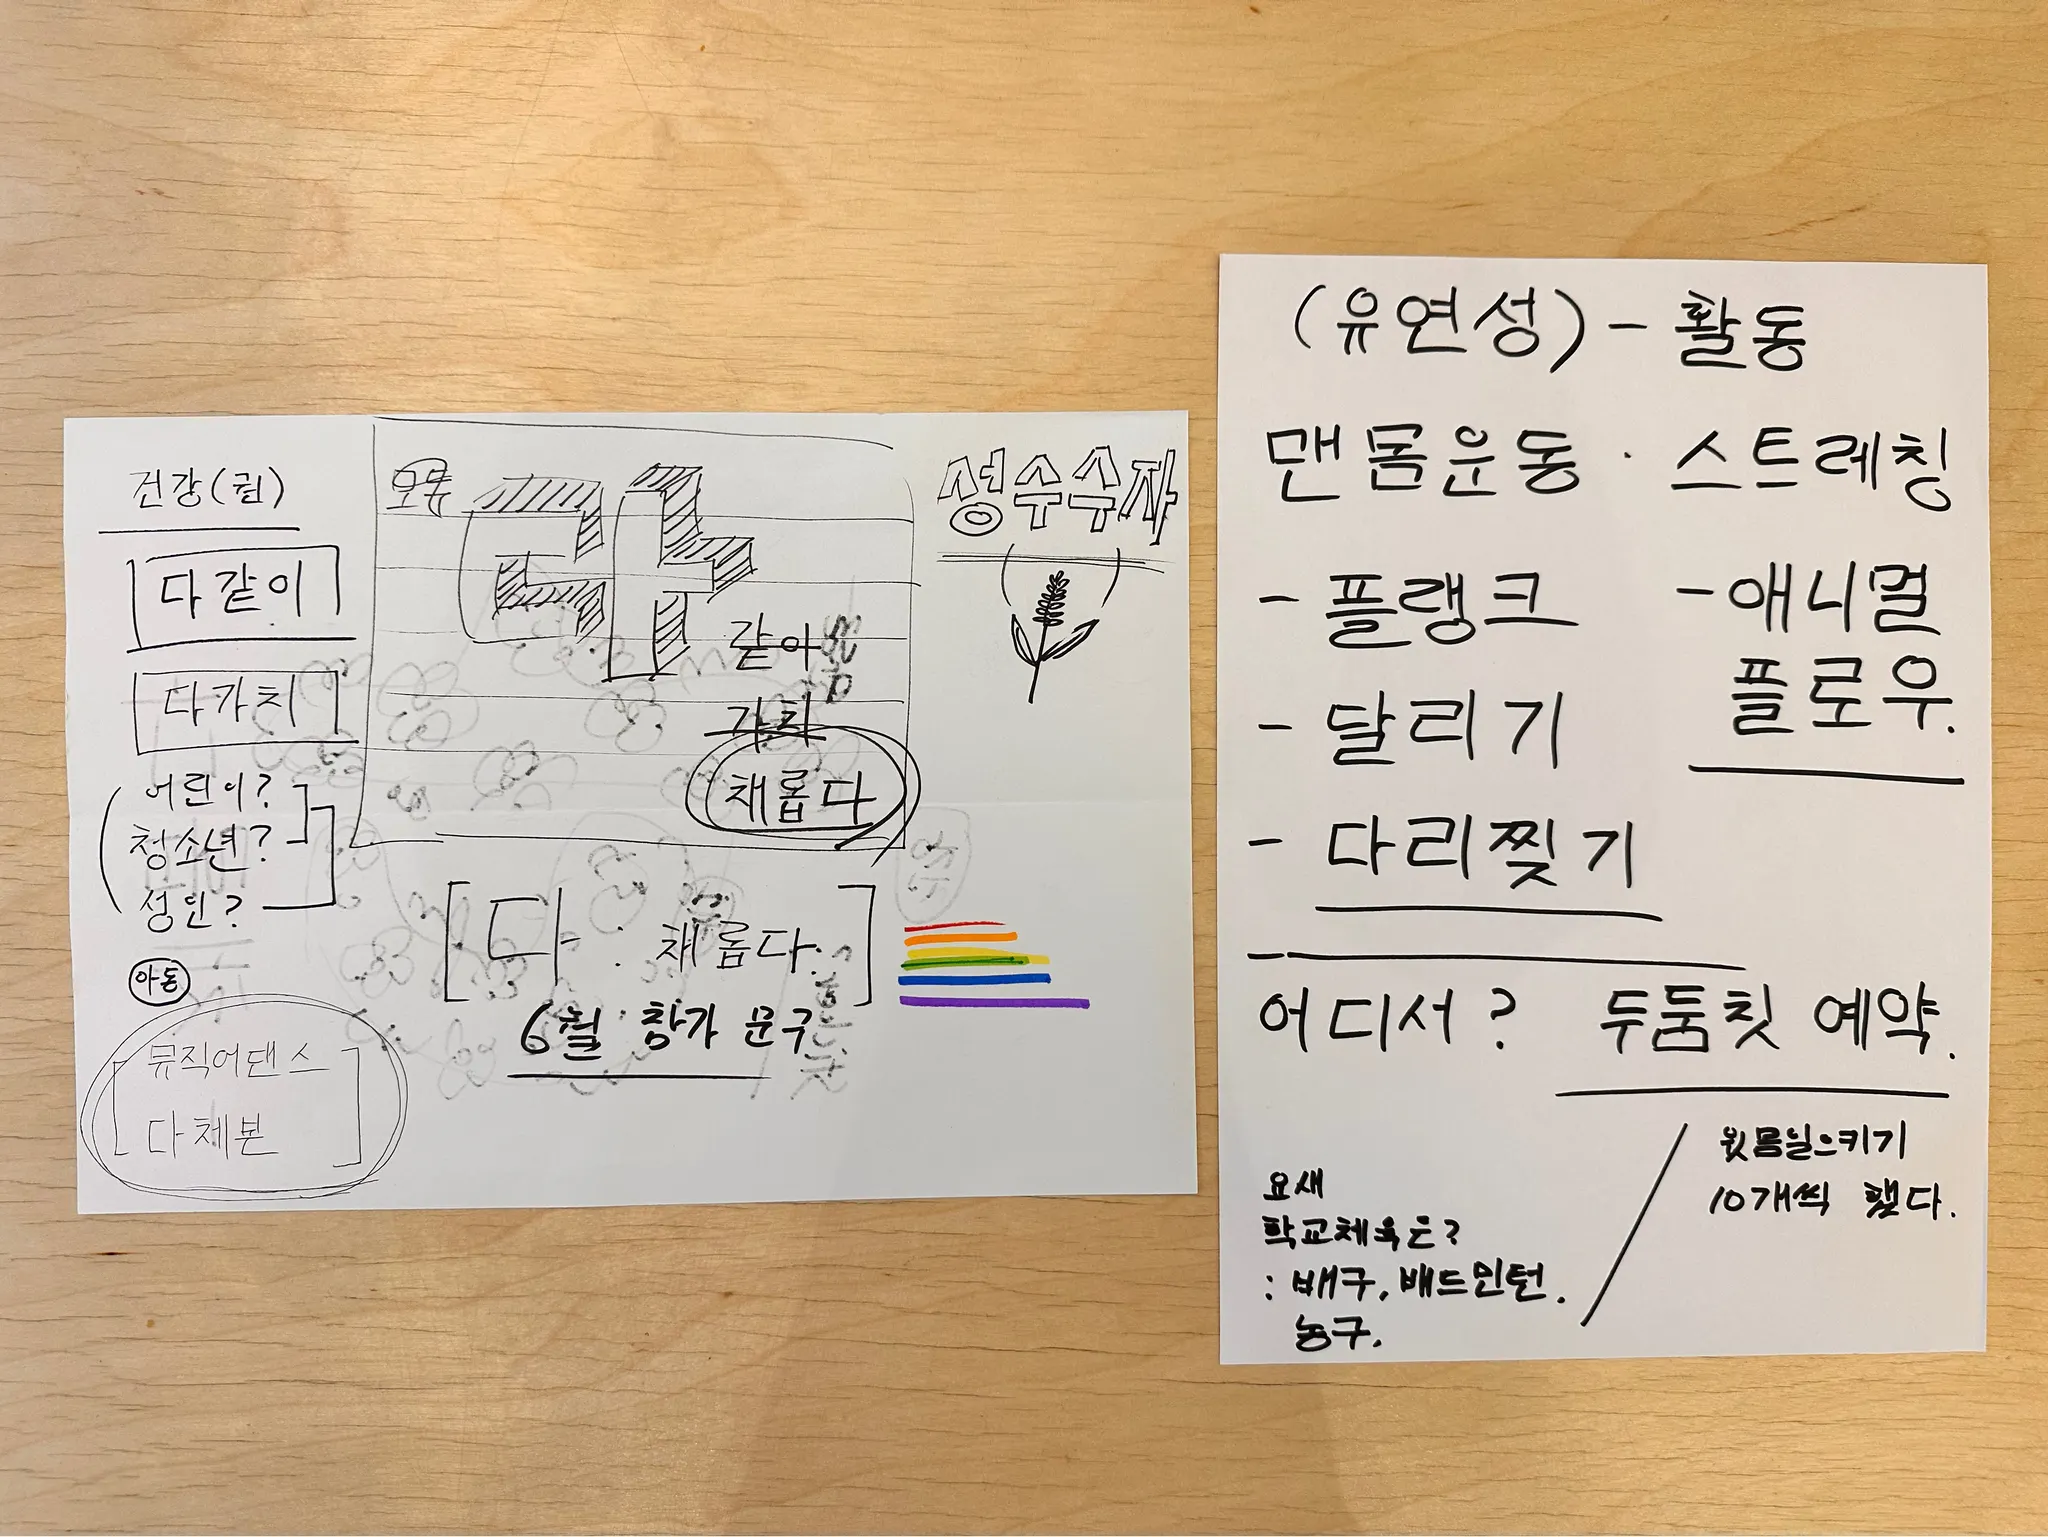 건강(권)
다같이
다가치
어린이?
청소년?
성인?
아동
뮤직어댄스
다체본
오목
같이
가치
채롭다
다 : 채롭다.
6월 창가 문구
성수수자
(유연성) - 활동
맨몸운동 · 스트레칭
- 플랭크
- 달리기
- 다리찢기
- 애니멀
플로우.
어디서? 두둠칫 예약.
요새
학교체육은?
: 배구, 배드민턴.
농구.
윗몸일으키기
10개씩 했다.